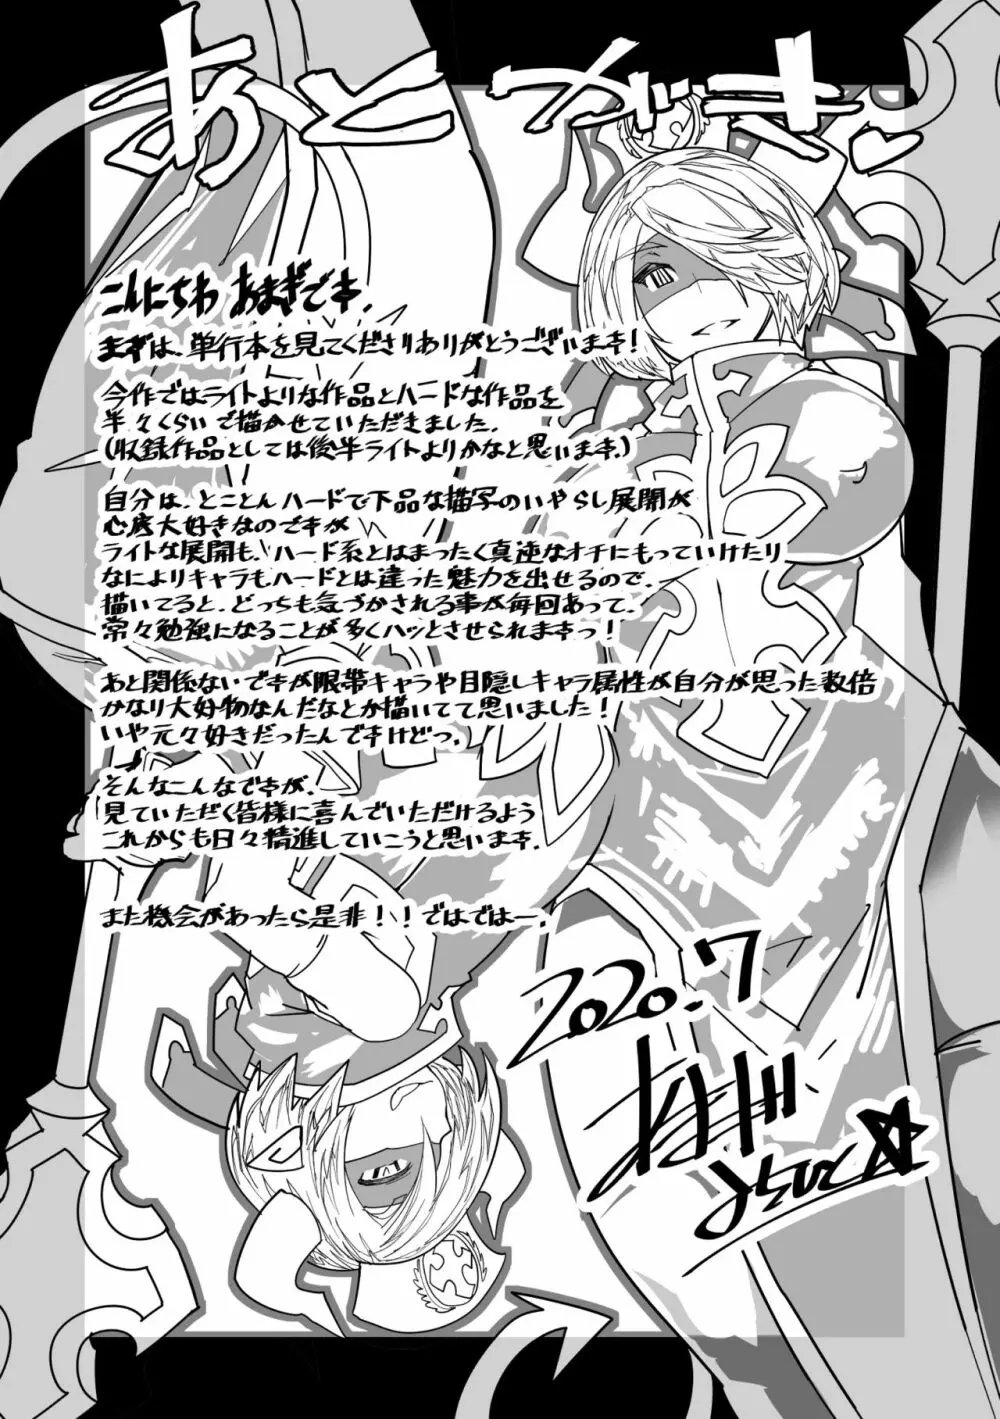 あとがき♥
こんにちわ あまぎです.
まずは、単行本を見てくださりありがとうございます!
今作ではライトよりな作品とハードな作品を
半々くらいで描かせていただきました.
(収録作品としては後半ライトよりかなと思います.)
自分は、とことんハードで下品な描写のいやらし展開が
心底大好きなのですが
ライトな展開も、ハード系とはまったく真逆なオチにもっていけたり
なによりキャラもハードとは違った魅力を出せるので、
描いてると、どっちも気づかされる事が毎回あって、
常々勉強になることが多くハッとさせられますっ!
あと関係ないですが眼帯キャラや目隠しキャラ属性が自分が思った数倍
かなり大好物なんだなとか描いてて思いました!
いや元々好きだったんですけどっ.
そんなこんなですが、
見ていただく皆様に喜んでいただけるよう
これからも日々精進していこうと思います.
また機会があったら是非!!ではではー.
2020.7